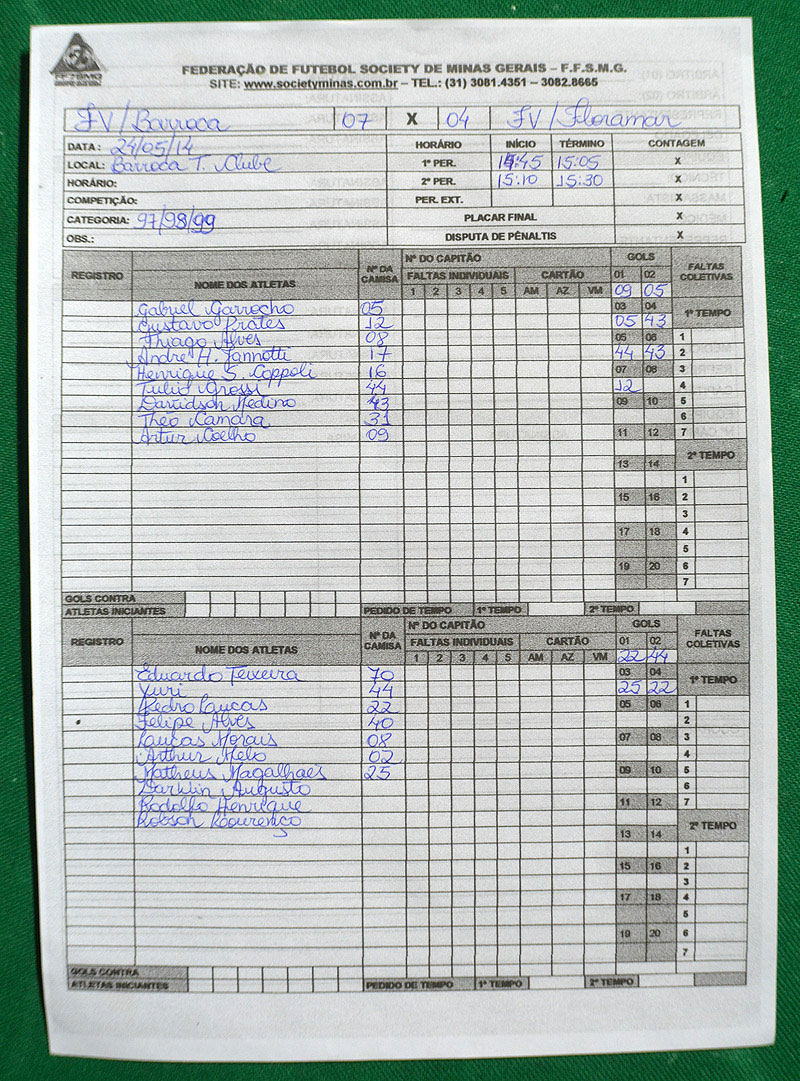 FEDERAÇÃO DE FUTEBOL SOCIETY DE MINAS GERAIS – F.F.S.M.G.
SITE: www.societyminas.com.br – TEL.: (31) 3081.4351 – 3082.8665
FV/Barroca 07 X 04 FV/Floramar
DATA: 24/05/14 HORÁRIO INÍCIO TÉRMINO CONTAGEM
LOCAL: Barroca T. Clube 1º PER. 14:45 15:05 X
HORÁRIO: 2º PER. 15:10 15:30 X
COMPETIÇÃO: PER. EXT. X
CATEGORIA: 97/98/99 PLACAR FINAL X
OBS.: DISPUTA DE PÊNALTIS X
REGISTRO NOME DOS ATLETAS Nº DA CAMISA Nº DO CAPITÃO GOLS FALTAS COLETIVAS
FALTAS INDIVIDUAIS CARTÃO 01 02
1 2 3 4 5 AM AZ VM 09 05
Gabriel Garrocho 05 03 04 1º TEMPO
Gustavo Prates 12 05 43
Thiago Alves 08 05 06 1
Andre H. Iannotti 17 44 43 2
Henrique S. Coppoli 16 07 08 3
Tulio Grossi 44 12 4
Davidson Medino 43 09 10 5
Théo Camara 31 6
Artur Coelho 09 11 12 7
2º TEMPO
13 14
1
15 16 2
3
17 18 4
5
19 20 6
7
GOLS CONTRA
ATLETAS INICIANTES PEDIDO DE TEMPO 1º TEMPO 2º TEMPO
REGISTRO NOME DOS ATLETAS Nº DA CAMISA Nº DO CAPITÃO GOLS FALTAS COLETIVAS
FALTAS INDIVIDUAIS CARTÃO 01 02
1 2 3 4 5 AM AZ VM 22 44
Eduardo Teixeira 70 03 04 1º TEMPO
Yuri 44 25 22
Pedro Lucas 22 05 06 1
Felipe Alves 40 2
Lucas Morais 08 07 08 3
Arthur Melo 02 4
Matheus Magalhães 25 09 10 5
Augusto 6
Rodolfo Henrique 11 12 7
Robson 2º TEMPO
13 14
1
15 16 2
3
17 18 4
5
19 20 6
7
GOLS CONTRA
ATLETAS INICIANTES PEDIDO DE TEMPO 1º TEMPO 2º TEMPO